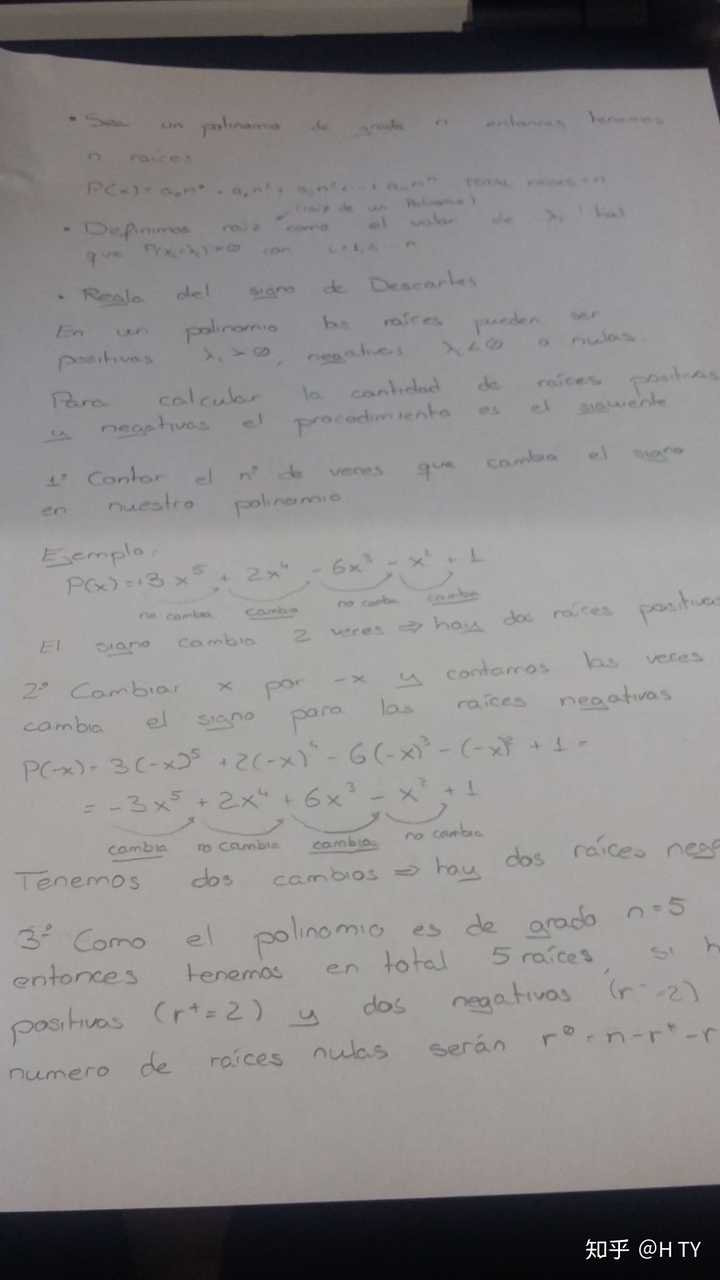 • Sea un polinomio de grado n entonces tenemos
n raíces
• Definimos raíz como el valor de λi tal
(raíz de un Polinomio)
que
• Regla del signo de Descartes
En un polinomio las raíces pueden ser
positivas λi > 0, negativas λi < 0 o nulas.
Para calcular la cantidad de raíces positivas
y negativas el procedimiento es el siguiente
1º Contar el nº de veces que cambia el signo
en nuestro polinomio
Ejemplo:
P(x)=+3x⁵ + 2x⁴ - 6x³ - x² + 1
no cambia cambia no cambia cambia
El signo cambia 2 veces ⇒ hay dos raíces positivas
2º Cambiar x por -x y contamos las veces
cambia el signo para las raíces negativas
P(-x) = 3(-x)⁵ + 2(-x)⁴ - 6(-x)³ - (-x)² + 1 =
= -3x⁵ + 2x⁴ + 6x³ - x² + 1
cambia no cambia cambia no cambia
Tenemos dos cambios ⇒ hay dos raíces neg
3º Como el polinomio es de grado n=5
entonces tenemos en total 5 raíces, si h
positivas (r⁺=2) y dos negativas (r⁻=2)
numero de raíces nulas serán r⁰ = n - r⁺ - r
知乎 @H TY